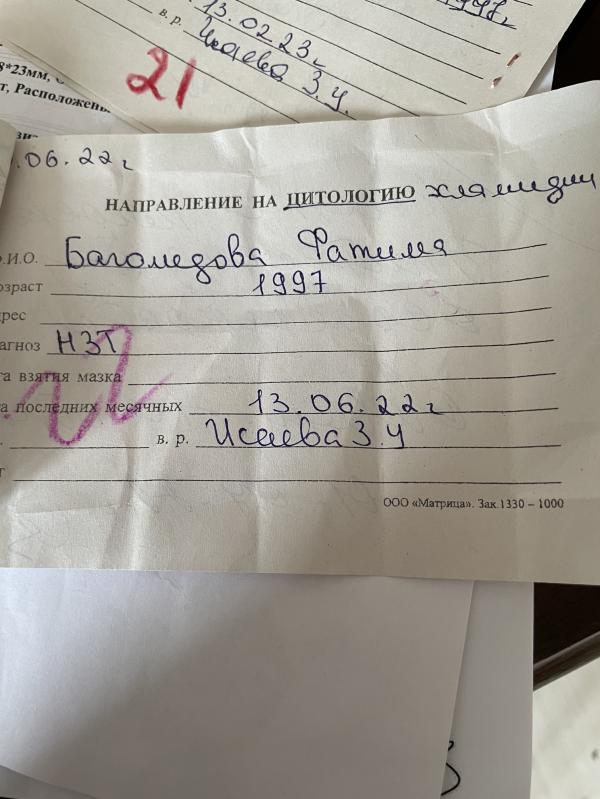 1998г
13.02.23г
в. р. Исаева З.У.
21
8*23мм,
т, Расположены
.06.22г
НАПРАВЛЕНИЕ НА ЦИТОЛОГИЮ хламидии
.И.О. Багомедова Фатима
озраст 1997
рес
агноз НЗТ
та взятия мазка
та последних месячных 13.06.22г
в. р. Исаева З.У
22
г
ООО «Матрица». Зак.1330 – 1000